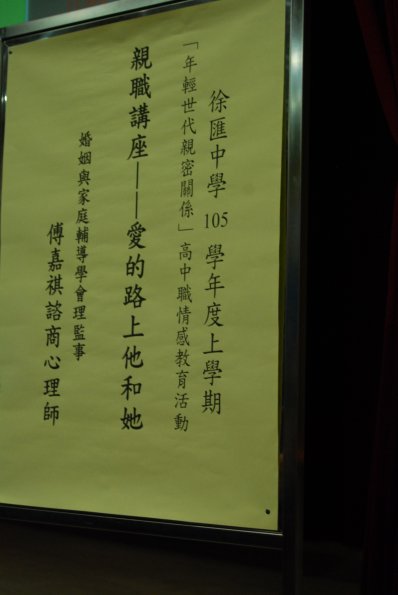 徐匯中學105學年度上學期
「年輕世代親密關係」高中職情感教育活動
親職講座——愛的路上他和她
婚姻與家庭輔導學會理監事
傅嘉祺諮商心理師